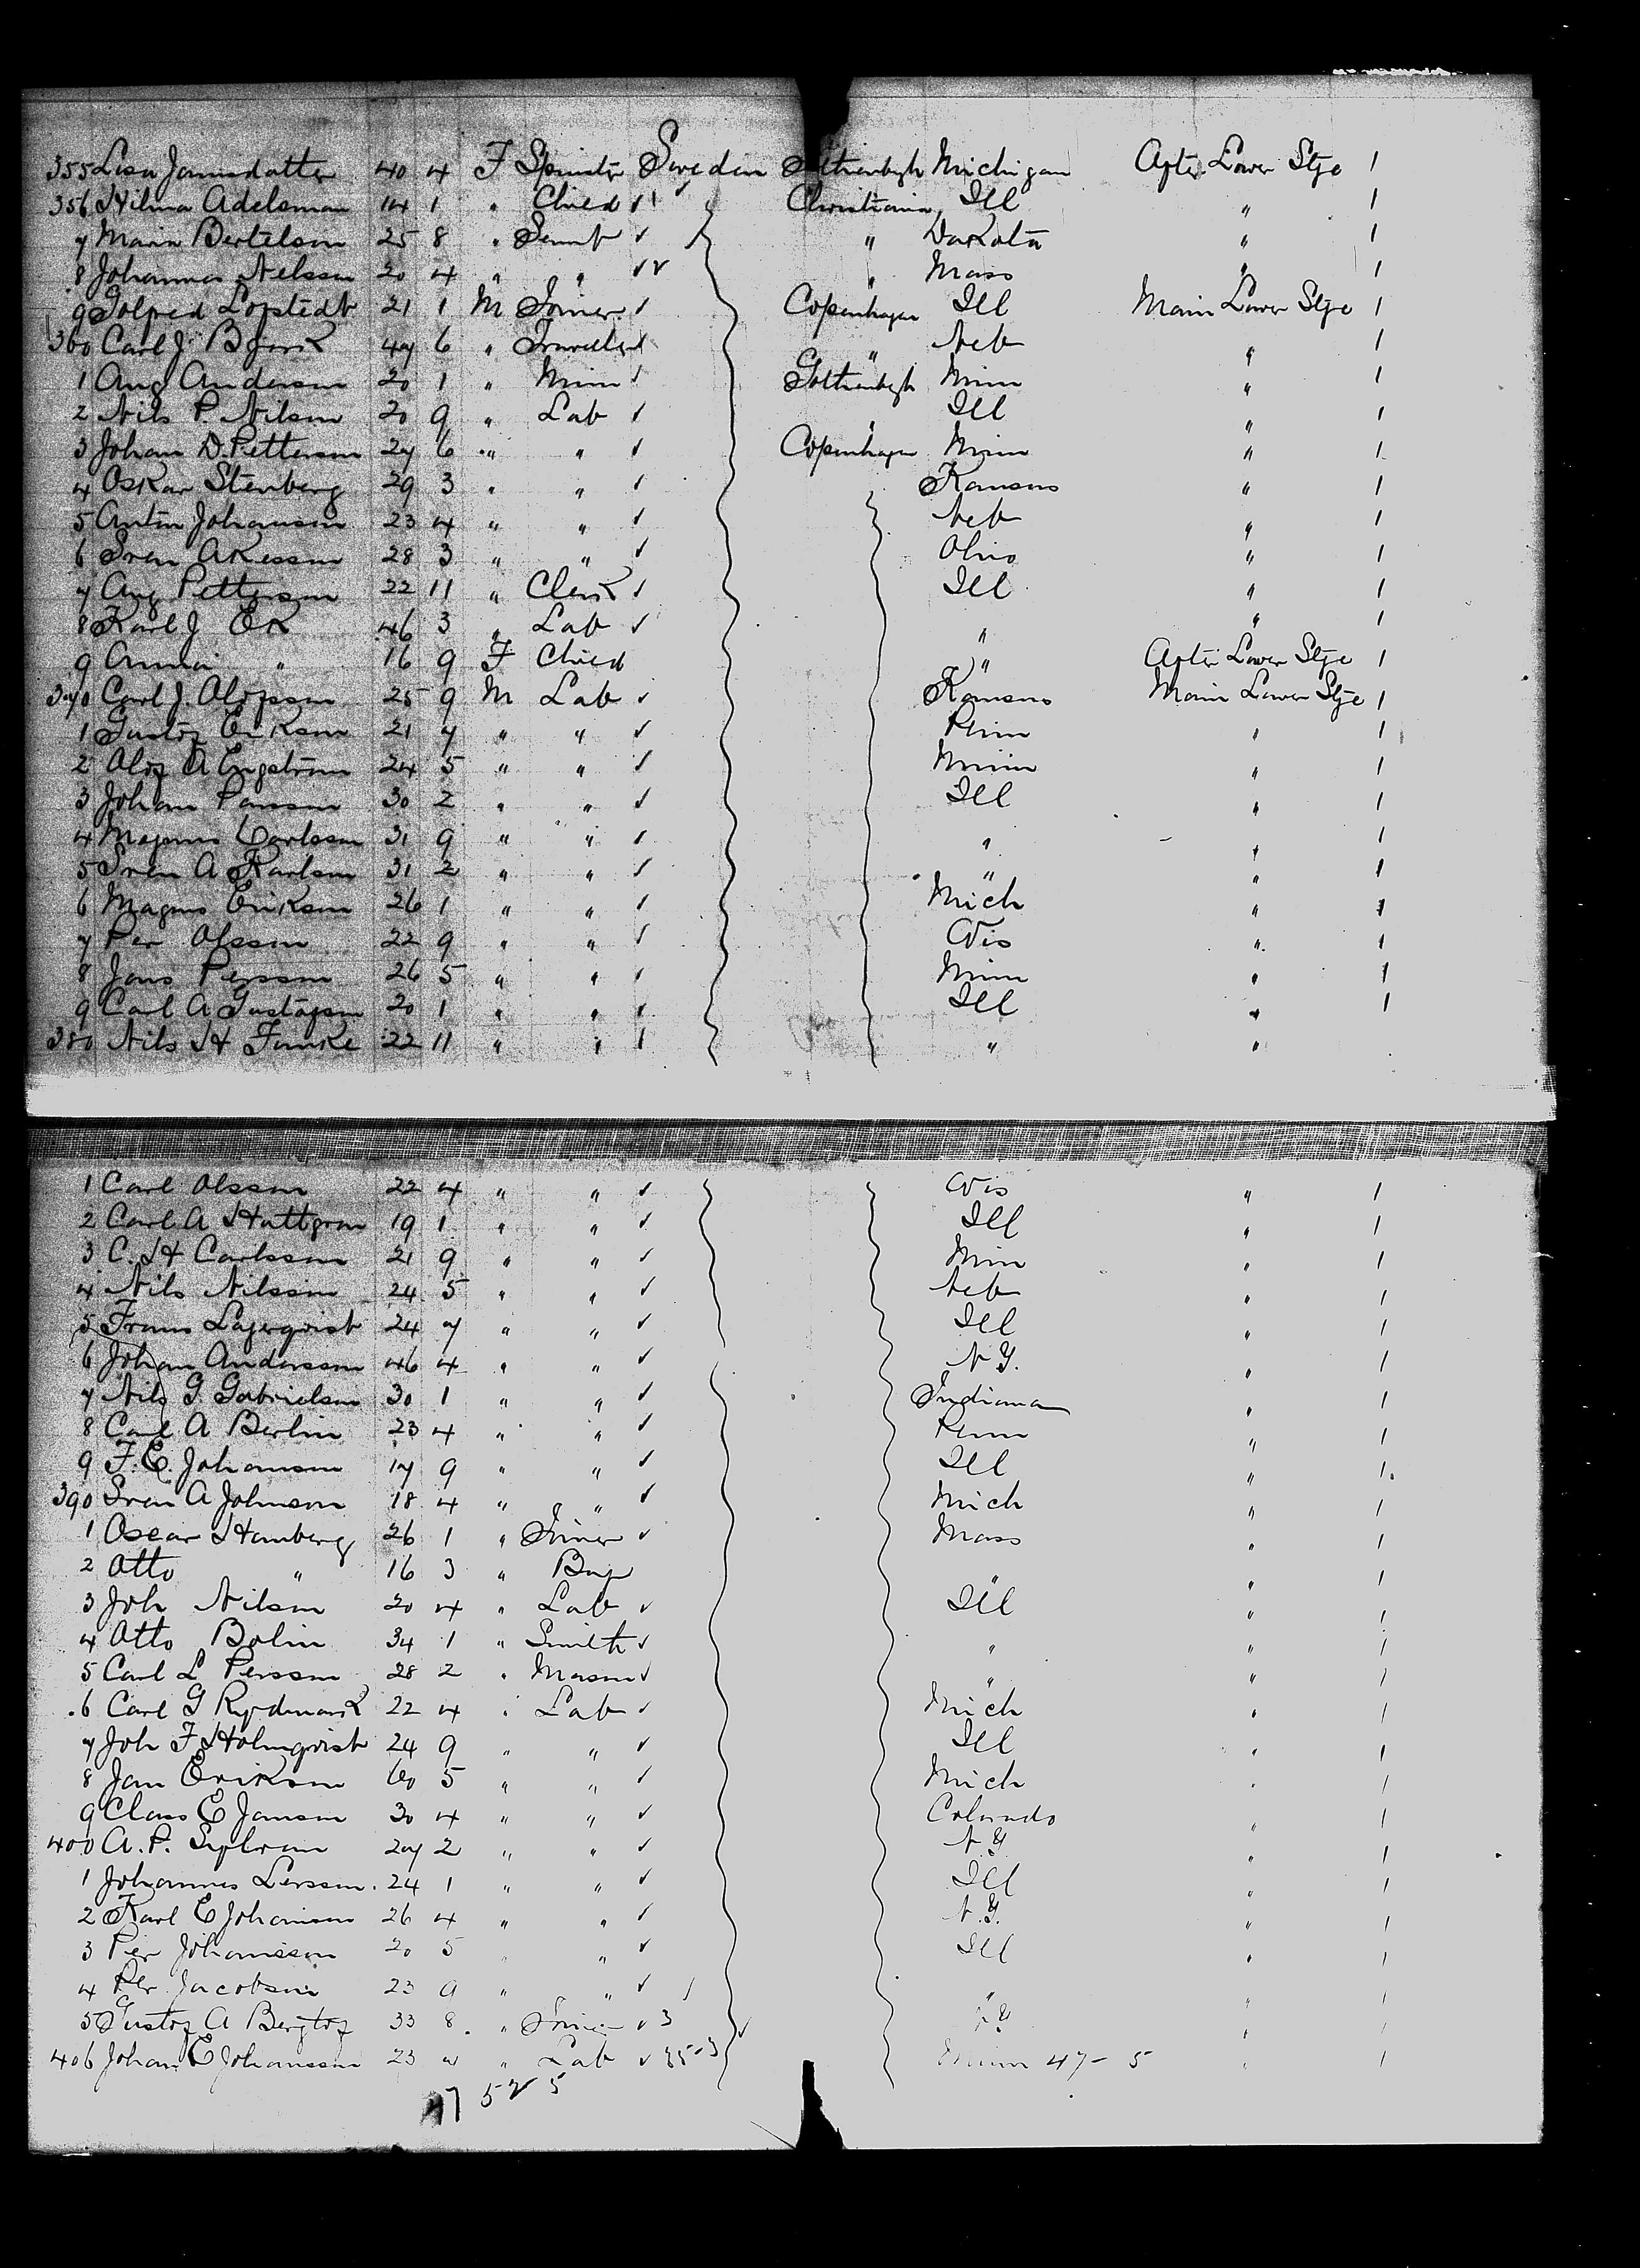 355 Lisa Jannsdotter 40 4 F Spinster Sweden Gothenbgh Michigan After Lower Stge 1
356 Hilma Adelsman 14 1 " Child Christiania Ill " 1
7 Maria Bertelson 25 8 " Servnt " Dakota " 1
8 Johanna Nelsson 20 4 " " " Mass " 1
9 Golfred Lofstedt 21 1 M Joiner Copenhagen Ill Main Lower Stge 1
360 Carl J. Bjork 47 6 " Traveller " Neb " 1
1 Aug Anderson 20 1 " Gothenbgh Minn " 1
2 Nils P. Nilson 20 9 " Lab Ill " 1
3 Johan D. Petterson 27 6 " " Copenhagen Minn " 1
4 Oskar Stenberg 29 3 " " Kansas " 1
5 Anton Johanson 23 4 " " Neb " 1
6 Sven Akesson 28 3 " " Ohio " 1
7 Aug Petterson 22 11 " Clerk Ill " 1
8 Karl J Ek 46 3 " Lab " " 1
9 Anna " 16 9 F Child " After Lower Stge 1
370 Carl J. Olofsson 25 9 M Lab Kansas Main Lower Stge 1
1 Gustof Erikson 21 7 " " Penn " 1
2 Olof A Engstrom 24 5 " " Minn " 1
3 Johan Pansson 30 2 " " Ill " 1
4 Magnus Carlsson 31 9 " " " " 1
5 Sven A Karlson 31 2 " " " " 1
6 Magnus Erikson 26 1 " " Mich " 1
7 Per Olsson 22 9 " " Wis " 1
8 Jons Persson 26 5 " " Minn " 1
9 Carl A Gustafson 20 1 " " Ill " 1
380 Nils H Funke 22 11 " " " "
1 Carl Olsson 22 4 " " Wis " 1
2 Carl A Hultgren 19 1 " " Ill " 1
3 C. H Carlsson 21 9 " " Minn " 1
4 Nils Nilsson 24 5 " " Neb " 1
5 Frans Lagerqvist 24 7 " " Ill " 1
6 Johan Andersson 46 4 " " N Y. " 1
7 Nils G. Gabrielson 30 1 " " Indiana " 1
8 Carl A Berlin 23 4 " " Penn " 1
9 F. E. Johanson 17 9 " " Ill " 1
390 Sven A Johnson 18 4 " " Mich " 1
1 Oscar Hamberg 26 1 " Joiner Mass " 1
2 Otto " 16 3 " Boy " " 1
3 Joh Nilson 20 4 " Lab Ill " 1
4 Otto Bolin 34 1 " Smith " " 1
5 Carl L Persson 28 2 " Mason " " 1
6 Carl G Rydmark 22 4 " Lab Mich " 1
7 Joh F Holmqvist 24 9 " " Ill " 1
8 Jan Erikson 60 5 " " Mich " 1
9 Claes E Janson 30 4 " " Colorado " 1
400 A. P. 27 2 " " N Y " 1
1 Johannes Persson 24 1 " " Ill " 1
2 Karl E Johanson 26 4 " " N. Y. " 1
3 Per Johansson 20 5 " " Ill " 1
4 Per Jacobson 23 9 " " " " 1
5 Gustof A Bergtof 33 8 " Joiner 3 N Y " 1
406 Johan E Johansson 23 " Lab 35-3 Minn 47-5 " 1
47 52 5